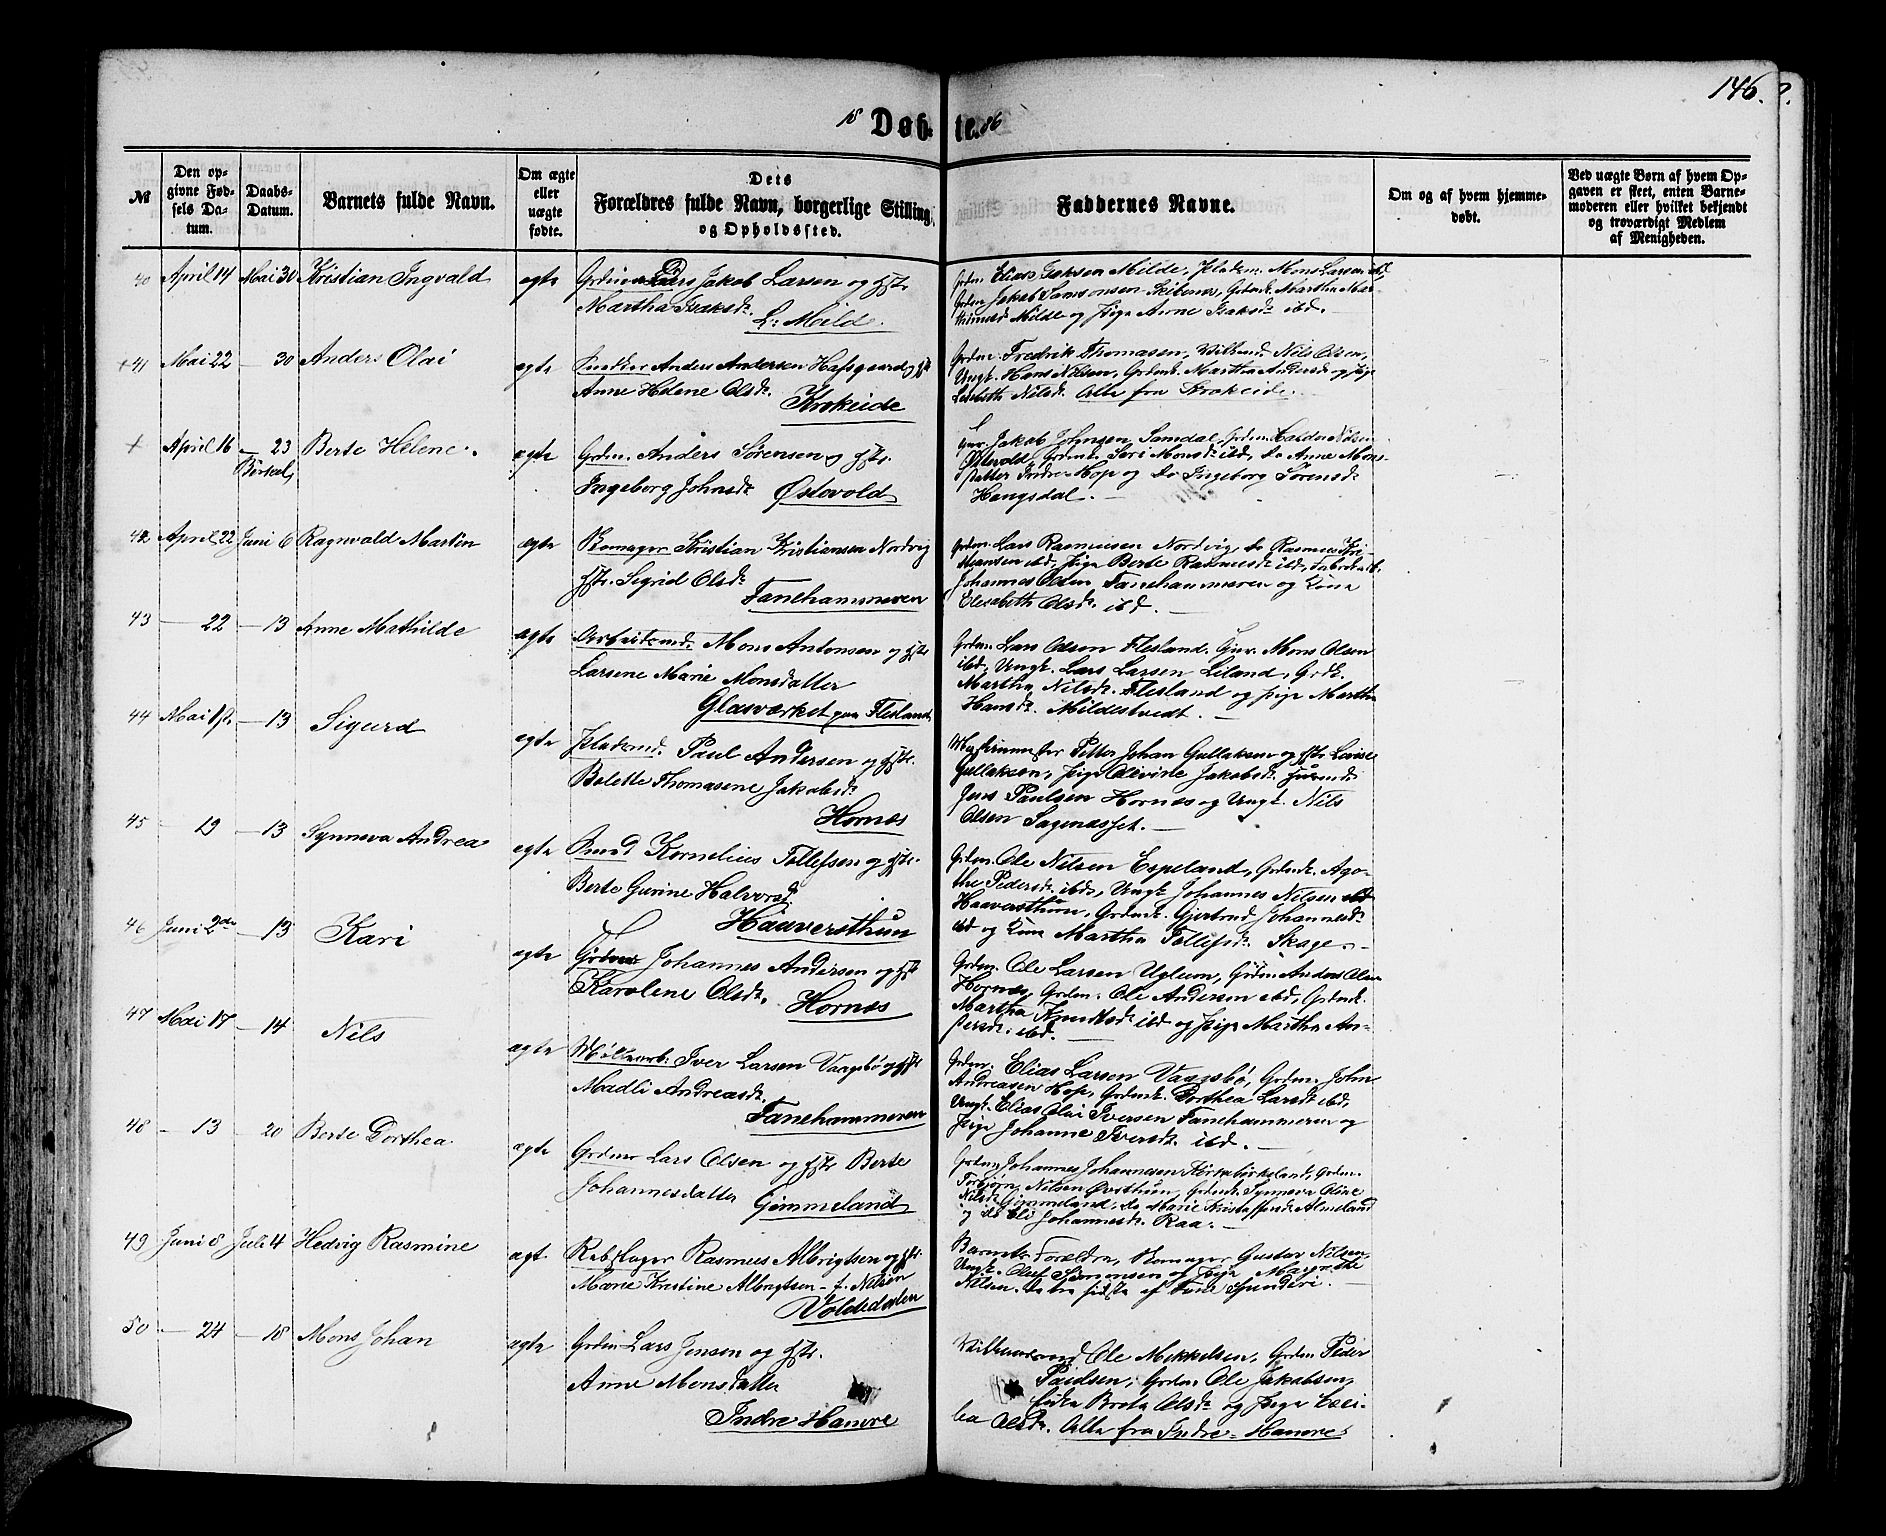 146.
18 Døbte. 86
№
Den opgivne Fødsels Datum.
Daabs-Datum.
Barnets fulde Navn.
Om ægte eller uægte fødte.
Dets Forældres fulde Navn, borgerlige Stilling, og Opholdssted.
Faddernes Navne.
Om og af hvem hjemmedøbt.
Ved uægte Børn af hvem Opgaven er skeet, enten Barnemoderen eller hvilket bekjendt og troværdigt Medlem af Menigheden.
40 April 14 Mai 30 Kristian Ingvald egte
Jakob Larsen og Hstr.
Martha Isaksdr.
L: Milde
Grdm. Elias Isaksen Milde, Pladsm. Mons Larsen ibd,
Grdm Jakob Samsonsen Skibenes, Grdmk. Martha
Milde og Pige Anne Isaksdr ibd.
+ 41 Mai 22 — 30 Anders Olai egte
Snedker Anders Andersen Hafsgaard og Hstr
Anne Helene Olsdr.
Krokeide
Grdm. Fredrik Thomasen, Nils Olsen,
Ungk. Hans Nilsen, Grdmk. Martha og Pige
Lisbeth Nilsdr. Alle fra Krokeide.
+ April 16 — 23 Berte Helene. egte
Birkel.
Grdm. Anders Sørensen og Hstr.
Ingeborg Johnsdr Østevold
Gmr. Jakob Johnsen Samdal, Grdm. Haldor Nilsen
Østevold, Grdmk. Seri Monsdr ibd, Do Anne Mons-
datter Indre-Hop og Do Ingeborg Sørensdr
Haugsdal.
42 April 22 Juni 6 Ragnvald Martin egte
Kristian Kristiansen Nordvig
Hstr. Sigrid Olsdr
Fanehammeren
Grdm. Lars Rasmusen Nordvig, do Rasmus Kri-
stiansen ibd, Pige Berte Rasmusdr ibd,
Johannes Olsen Fanehammeren og Kone
Elisabeth Olsdr. ibd.
43 — 22 — 13 Anne Mathilde egte
Arbeidsmd. Mons Antonsen og Hstr
Larsene Marie Monsdatter
Glasværket paa Flesland
Grdm. Lars Olsen Flesland. Gmr. Mons Olsen
ibd, Ungk. Lars Larsen Liland, Grdk.
Martha Nilsdr. Flesland og Pige Martha
Hansdr. Mildestvedt.
44 Mai — 13 Sigurd egte
Pladsmd. Paul Andersen og Hstr.
Bolette Thomasene Jakobsdr
Hornæs
Petter Johan Gullaksen og Hstr Lovise
Gullaksen, Pige Olevine Jakobsdr
Jens Paulsen Hornæs og Ungk. Nils
Olsen Sagenæsset.
45 — 19 — 13 Synneva Andrea egte
Kornelius Tollefsen og Hstr.
Berte Gurine Halvorsdr
Haaversthun
Grdm. Ole Nilsen Espeland, Grdmk. Ago-
the Pedersdr. ibd, Ungk Johannes Nilsen
Haaversthun, Grdmk. Gjertrud Johannesdr
ibd og Kone Martha Tollefsdr. Skage.
46 Juni 2den — 13 Kari egte
Grdm Johannes Andersen og Hstr
Karolene Olsdr.
Hornæs
Grdm. Ole Larsen Uglum, Grdm Anders Olsen
Hornæs, Grdm. Ole Andersen ibd, Grdmk.
Martha Knudsdr ibd og Pige Martha An-
dersdr. ibd.
47 Mai 17 — 14 Nils egte
Iver Larsen Vaagsbø og Hstr
Madli Andreasdr.
Fanehammeren
Grdm. Elias Larsen Vaagsbø, Grdm. John
Andreasen Hop, Grdmk. Dorthea Larsdr ibd,
Ungk. Elias Olai Iversen Fanehammeren og
Pige Johanne Iversdr. ibd.
48 — 13 — 20 Berte Dorthea egte
Grdm Lars Olsen og Hstr Berte
Johannesdatter Gjømmeland
Grdm Johannes Johannesen Kirkebirkeland, Grdm.
Torbjørn Nilsen Øvsthun, Grdmk. Synneva Oline
Nilsdr Gjømmeland, do Marie Kristoffersdr Almeland
og do Eli Johannesdr. Raa.
49 Juni 8 Juli 4 Hedvig Rasmine egt.
Rebslager Rasmus Albrigtsen og Hstr.
Marie Kristine Albrigtsen f. Nilsen
Voldedalen
Barnets Forældre, Gustav Nilsen,
Ungk. Oluf Simonsen og Pige Margrethe
Nilsen.
50 — 24 — 18 Mons Johan egte
Grdm Lars Jensen og Hstr.
Anne Monsdatter
Indre Hamre
Ole Mikkelsen, Grdm. Peder
Paulsen, Grdm. Ole Jakobsen,
Brota Olsdr og Pige Ceci-
lia Olsdr. Alle fra Indre-Hamre.